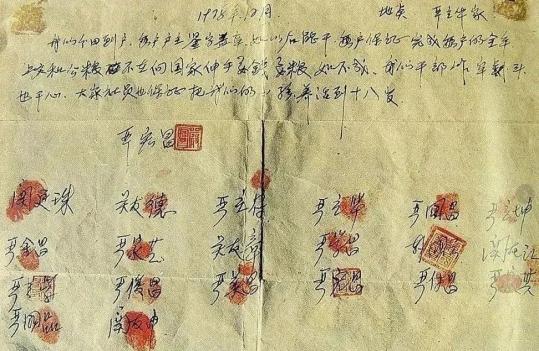 1978年12月. 地点 严立华家
我们分田到户,每户户主签字盖章,如以后能干,每户保证完成每户的全年
上交和公粮,不在向国家伸手要钱要粮,如不成,我们干部作牢刹头
也干心,大家社员也保证把我们的小孩养活到十八岁。
严宏昌
关廷珠 关友德 严立符 严立华 严国昌 严立坤
严金昌 严家芝 关友章 严学昌 韩国云 关友江
严立学 严俊昌 严美昌 严宏昌 严付昌
严国品 关友申